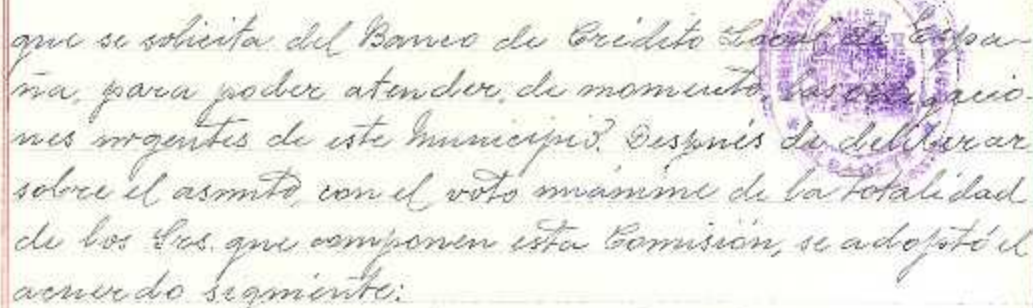 que se solicita del Banco de Crédito Local de Espa-
ña, para poder atender, de momento, las obligacio-
nes urgentes de este Municipio. Después de deliberar
sobre el asunto, con el voto unánime de la totalidad
de los Srs. que componen esta Comisión, se adoptó el
acuerdo siguiente: